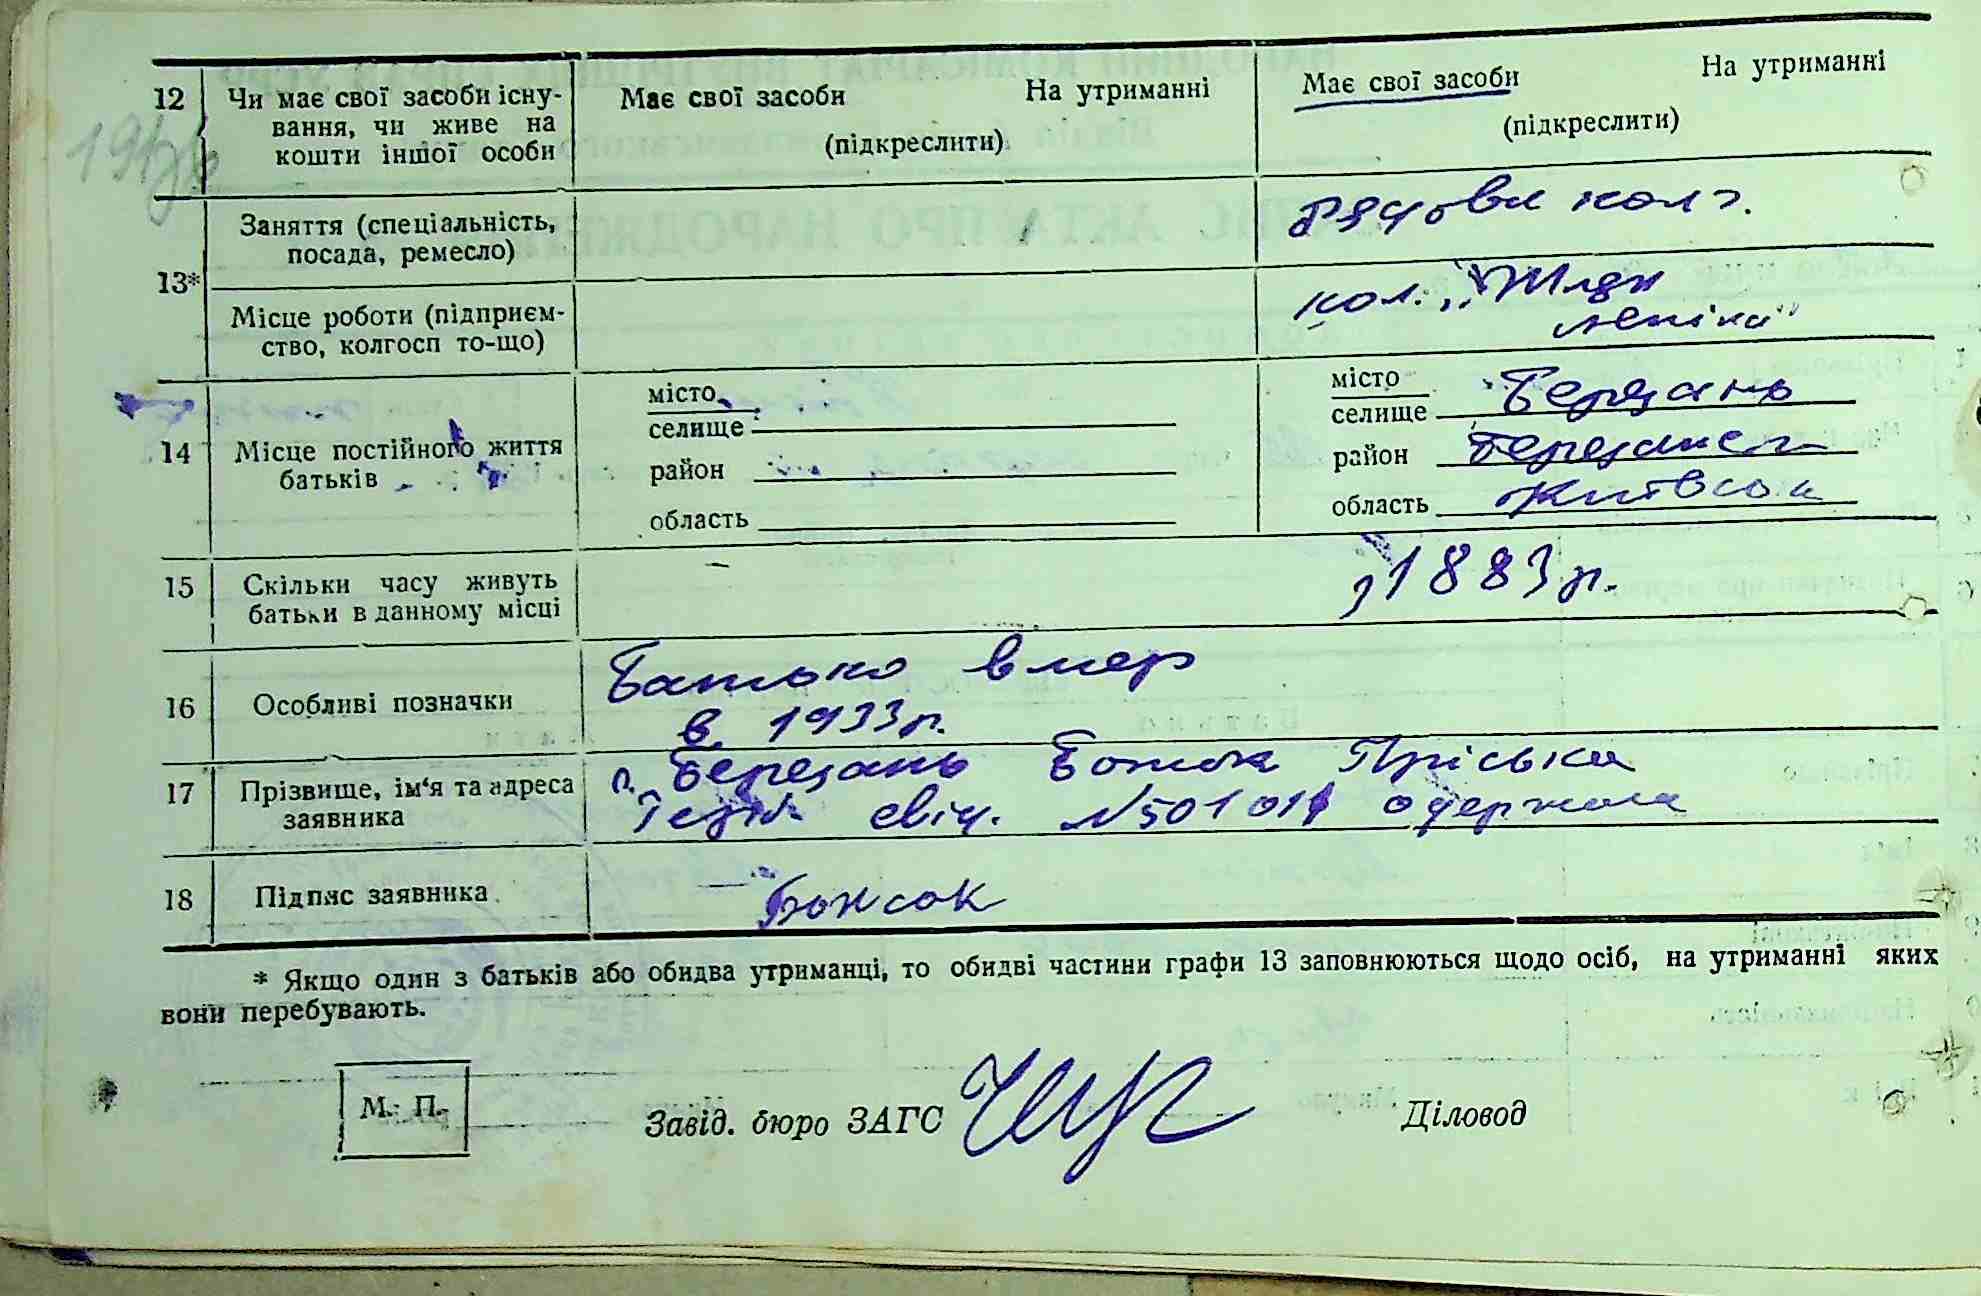 12 Чи має свої засоби існу-
вання, чи живе на
кошти іншої особи
Має свої засоби На утриманні
(підкреслити)
Має свої засоби На утриманні
(підкреслити)
13*
Заняття (спеціальність,
посада, ремесло)
рядова колг.
Місце роботи (підприєм-
ство, колгосп то-що)
кол. „Шлях
Леніна"
14 Місце постійного життя
батьків
місто
селище
район
область
місто
селище Березань
район Березанськ
область Київська
15 Скільки часу живуть
батьки в данному місці
—
з 1883 р.
16 Особливі позначки
Батько вмер
в 1933 р.
17 Прізвище, ім'я та адреса
заявника
Березань Божок Пріська
свід. №501011 одержала
18 Підпис заявника
Божок
* Якщо один з батьків або обидва утриманці, то обидві частини графи 13 заповнюються щодо осіб, на утриманні яких
вони перебувають.
М. П.
Завід. бюро ЗАГС
Діловод